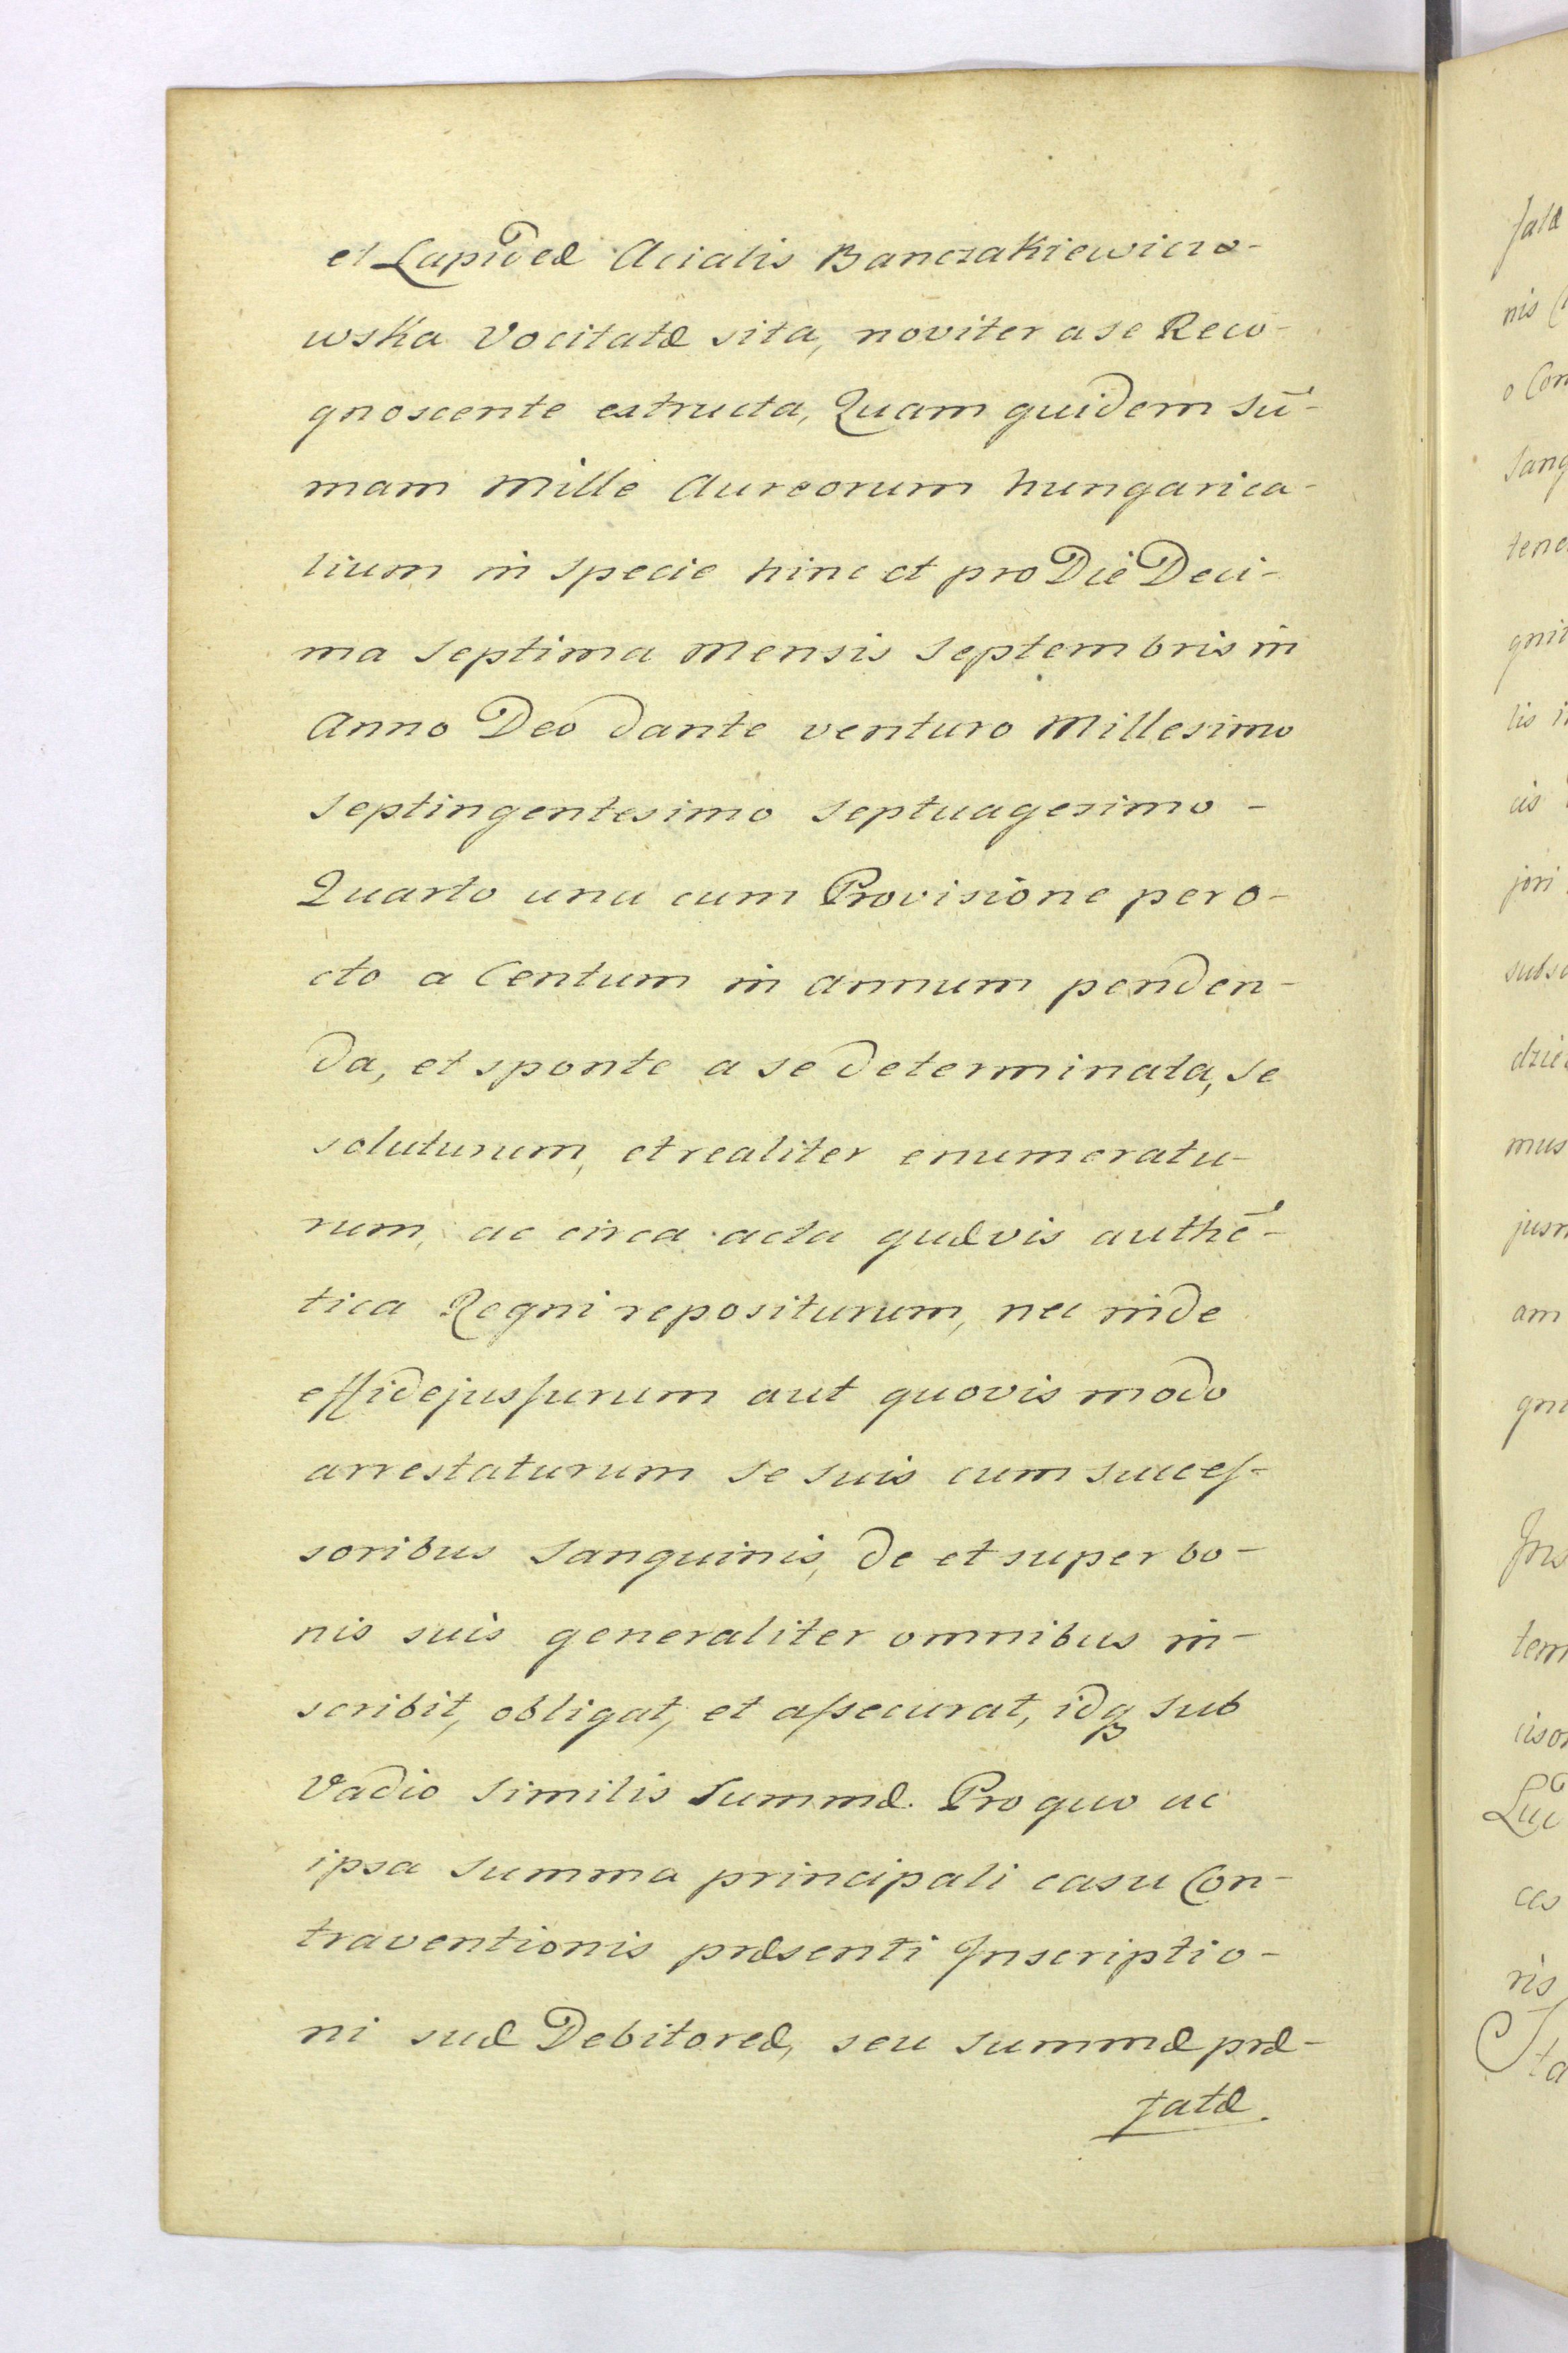 et Lapideæ Acialis Banczakiewiczo-
wska Vocitatæ sita, noviter a se Reco-
gnoscente extructa, Quam quidem sū-
mam Mille Aureorum hungarica-
lium in specie hinc et pro Die Deci-
ma Septima Mensis Septembris in
Anno Deo dante venturo Millesimo
Septingentesimo Septuagesimo -
Quarto una cum Provisione per o-
cto a Centum in annum penden-
da, et sponte a se determinata, se
soluturum, et realiter enumeratu-
rum, ac circa acta quævis authē-
tica Regni repositurum, nec inde
effidejussurum aut quovis modo
arrestaturum se suis cum succes-
soribus Sanguinis, de et super bo-
nis suis generaliter omnibus in-
scribit, obligat, et assecurat, idq sub
Vadio Similis Summæ. Pro quo ac
ipsa Summa principali casu Con-
traventionis præsenti Inscriptio-
ni suæ Debitoreæ, seu summæ præ-
fatæ.
fatæ
nis
o Con
sang
tene
gni
lis
cis
jori
subs
dzie
mus
jusm
am
gni
Ins
tem
ciso
ces
ris